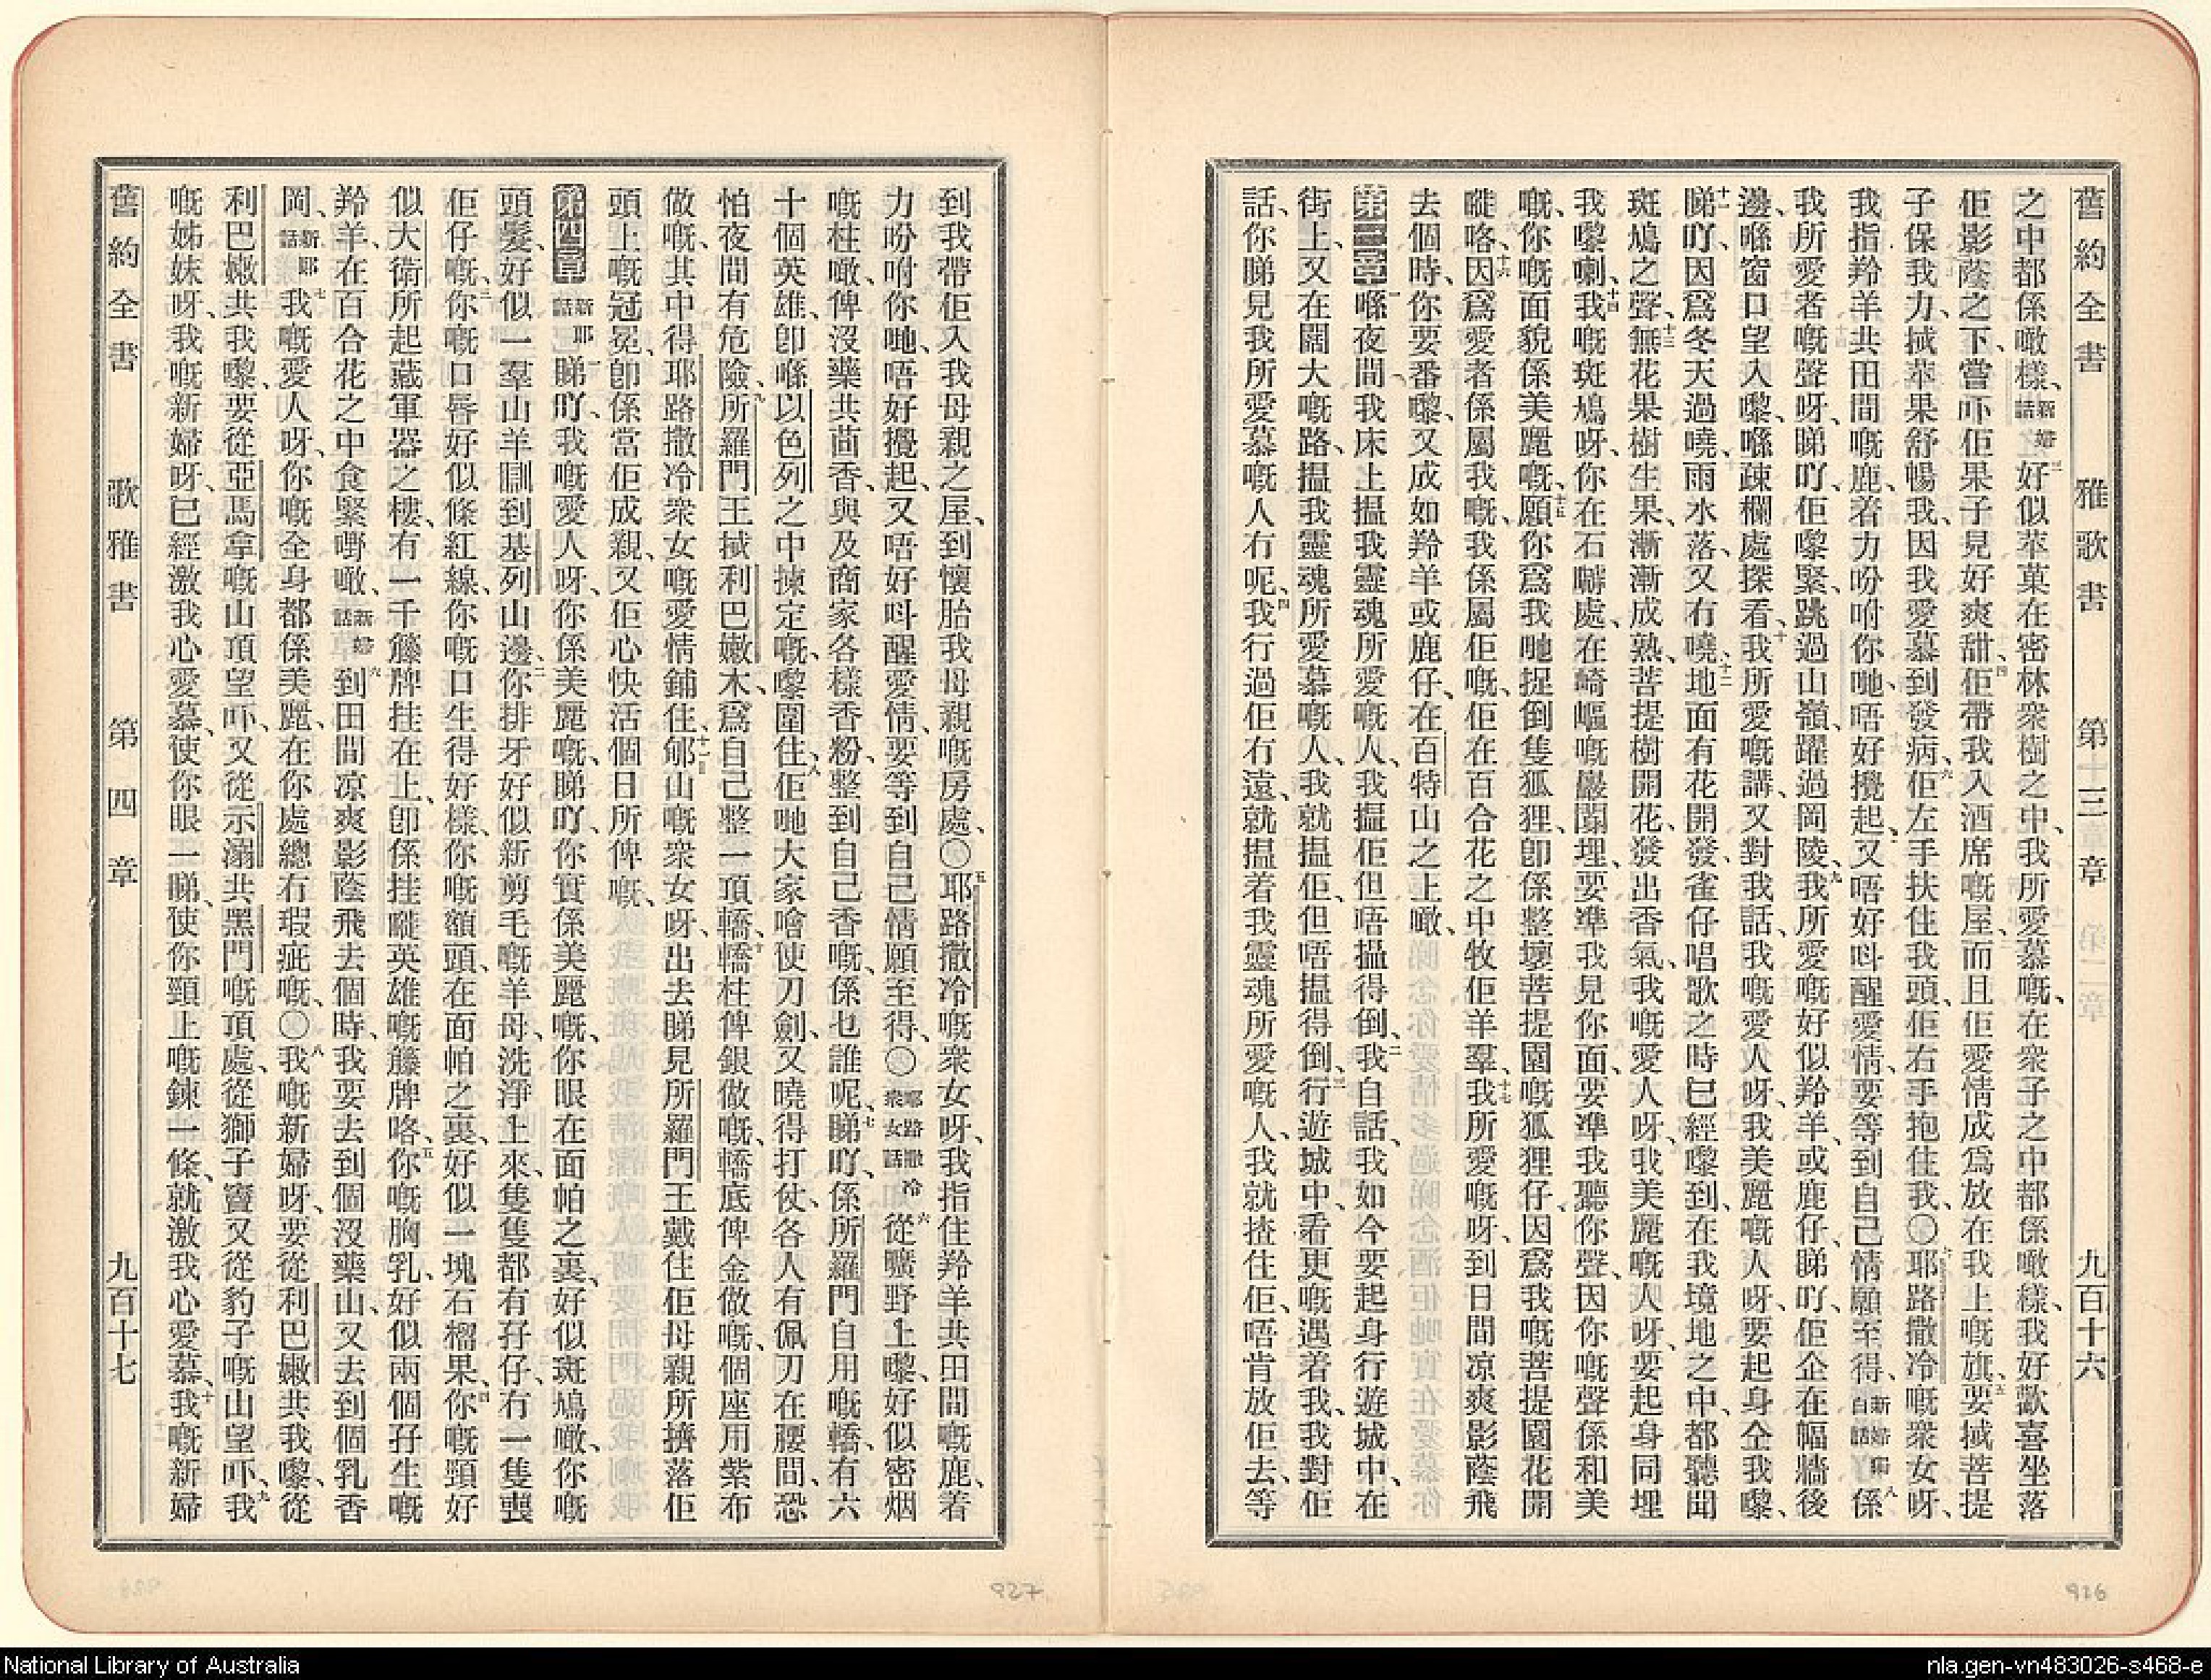 舊約全書 雅歌書 第三章 九百十六
之中都係噉樣、新婦話好似苹菓在密林衆樹之中、我所愛慕嘅、在衆子之中都係噉樣、我好歡喜坐落
佢影蔭之下、嘗吓佢果子見好爽甜、佢帶我入酒席嘅屋、而且佢愛情成爲放在我上嘅旗、要搣菩提
子保我力、搣苹果舒暢我、因我愛慕到發病、佢左手扶住我頭、佢右手抱住我、〇耶路撒冷嘅衆女呀、
我指羚羊共田間嘅鹿、着力吩咐你哋、唔好攪起、又唔好呌醒愛情、要等到自己情願至得、係
我所愛者嘅聲呀、睇吖、佢嚟緊、跳過山嶺、躍過岡陵、我所愛嘅好似羚羊、或鹿仔、睇吖、佢企在幅牆後
邊、喺窗口望入嚟、喺疎欄處探看、我所愛嘅講、又對我話、我嘅愛人呀、我美麗嘅人呀、要起身仝我嚟、
睇吖、因爲冬天過曉、雨水落、又冇曉、地面有花開發、雀仔唱歌之時已經嚟到、在我境地之中、都聽聞
斑鳩之聲、無花果樹生果、漸漸成熟、菩提樹開花、發出香氣、我嘅愛人呀、我美麗嘅人呀、要起身同埋
我嚟喇、我嘅斑鳩呀、你在石罅處、在崎嶇嘅巖㘔埋、要準我見你面、要準我聽你聲、因你嘅聲係和美
嘅、你嘅面貌係美麗嘅、願你爲我哋捉倒隻狐狸、卽係整壞菩提園嘅狐狸仔、因爲我嘅菩提園花開
嘥咯、因爲愛者係屬我嘅、我係屬佢嘅、佢在百合花之中牧佢羊羣、我所愛嘅呀、到日間凉爽影蔭飛
去個時、你要番嚟、又成如羚羊或鹿仔、在百特山之上噉、
第三章 喺夜間、我床上搵我靈魂所愛嘅人、我搵佢但唔搵得倒、我自話、我如今要起身行遊城中、在
街上、又在闊大嘅路、搵我靈魂所愛慕嘅人、我就搵佢、但唔搵得倒、行遊城中、看更嘅遇着我、我對佢
話、你睇見我所愛慕嘅人冇呢、我行過佢冇遠、就搵着我靈魂所愛嘅人、我就揸住佢、唔肯放佢去、等
到我帶佢入我母親之屋、到懷胎我母親嘅房處、〇耶路撒冷嘅衆女呀、我指住羚羊共田間嘅鹿、着
力吩咐你哋、唔好攪起、又唔好呌醒愛情、要等到自己情願至得、〇耶路撒冷衆女話從曠野上嚟、好似密烟
嘅柱噉、俾沒藥共茴香、與及商家各樣香粉、整到自己香嘅、係乜誰呢、睇吖、係所羅門自用嘅轎、有六
十個英雄、卽喺以色列之中揀定嘅、嚟圍住、佢哋大家噲使刀劍、又曉得打仗、各人有佩刀在腰間、恐
怕夜間有危險、所羅門王揻利巴嫩木、爲自己整一頂轎、轎柱俾銀做嘅、轎底俾金做嘅、個座用紫布
做嘅、其中得耶路撒冷衆女嘅愛情鋪住、郇山嘅衆女呀、出去睇見所羅門王戴住佢母親所擠落佢
頭上嘅冠冕、卽係當佢成親、又佢心快活個日所俾嘅、
第四章 新郞話睇吖、我嘅愛人呀、你係美麗嘅、睇吖、你實係美麗嘅、你眼在面帕之裏、好似斑鳩噉、你嘅
頭髮、好似一羣山羊瞓到基列山邊、你排牙好似新剪毛嘅羊母、洗淨上來、隻隻都有孖仔、冇一隻喪
佢仔嘅、你嘅口唇好似條紅線、你嘅口生得好樣、你嘅額頭、在面帕之裏、好似一塊石榴果、你嘅頸好
似大衛所起藏軍器之樓、有一千籐牌挂在上、卽係挂嘥英雄嘅籐牌咯、你嘅胸乳、好似兩個孖生嘅
羚羊、在百合花之中食緊嘢噉、新婦話到田間凉爽影蔭飛去個時、我要去到個沒藥山、又去到個乳香
岡、新郞話我嘅愛人呀、你嘅全身都係美麗、在你處總冇瑕疵嘅、〇我嘅新婦呀、要從利巴嫩共我嚟、從
利巴嫩共我嚟、要從亞馬拿嘅山頂望吓、又從示溺共黑門嘅頂處、從獅子竇又從豹子嘅山望吓、我
嘅姊妹呀、我嘅新婦呀、已經激我心愛慕、使你眼一睇、使你頸上嘅鍊一條、就激我心愛慕、我嘅新婦
舊約全書 歌雅書 第四章 九百十七
927
926
National Library of Australia
nla.gen-vn483026-s468-e